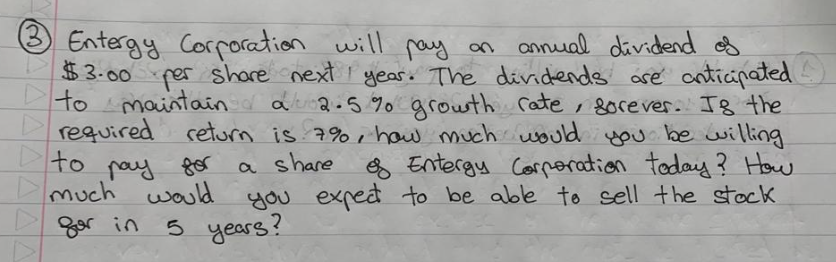 ③ Entergy Corporation will pay an annual dividend of
$3.00 per share next year. The dividends are anticipated
to maintain a 2.5% growth rate, forever. If the
required return is 7%, how much would you be willing
to pay for a share of Entergy Corporation today? How
much would you expect to be able to sell the stock
for in 5 years?